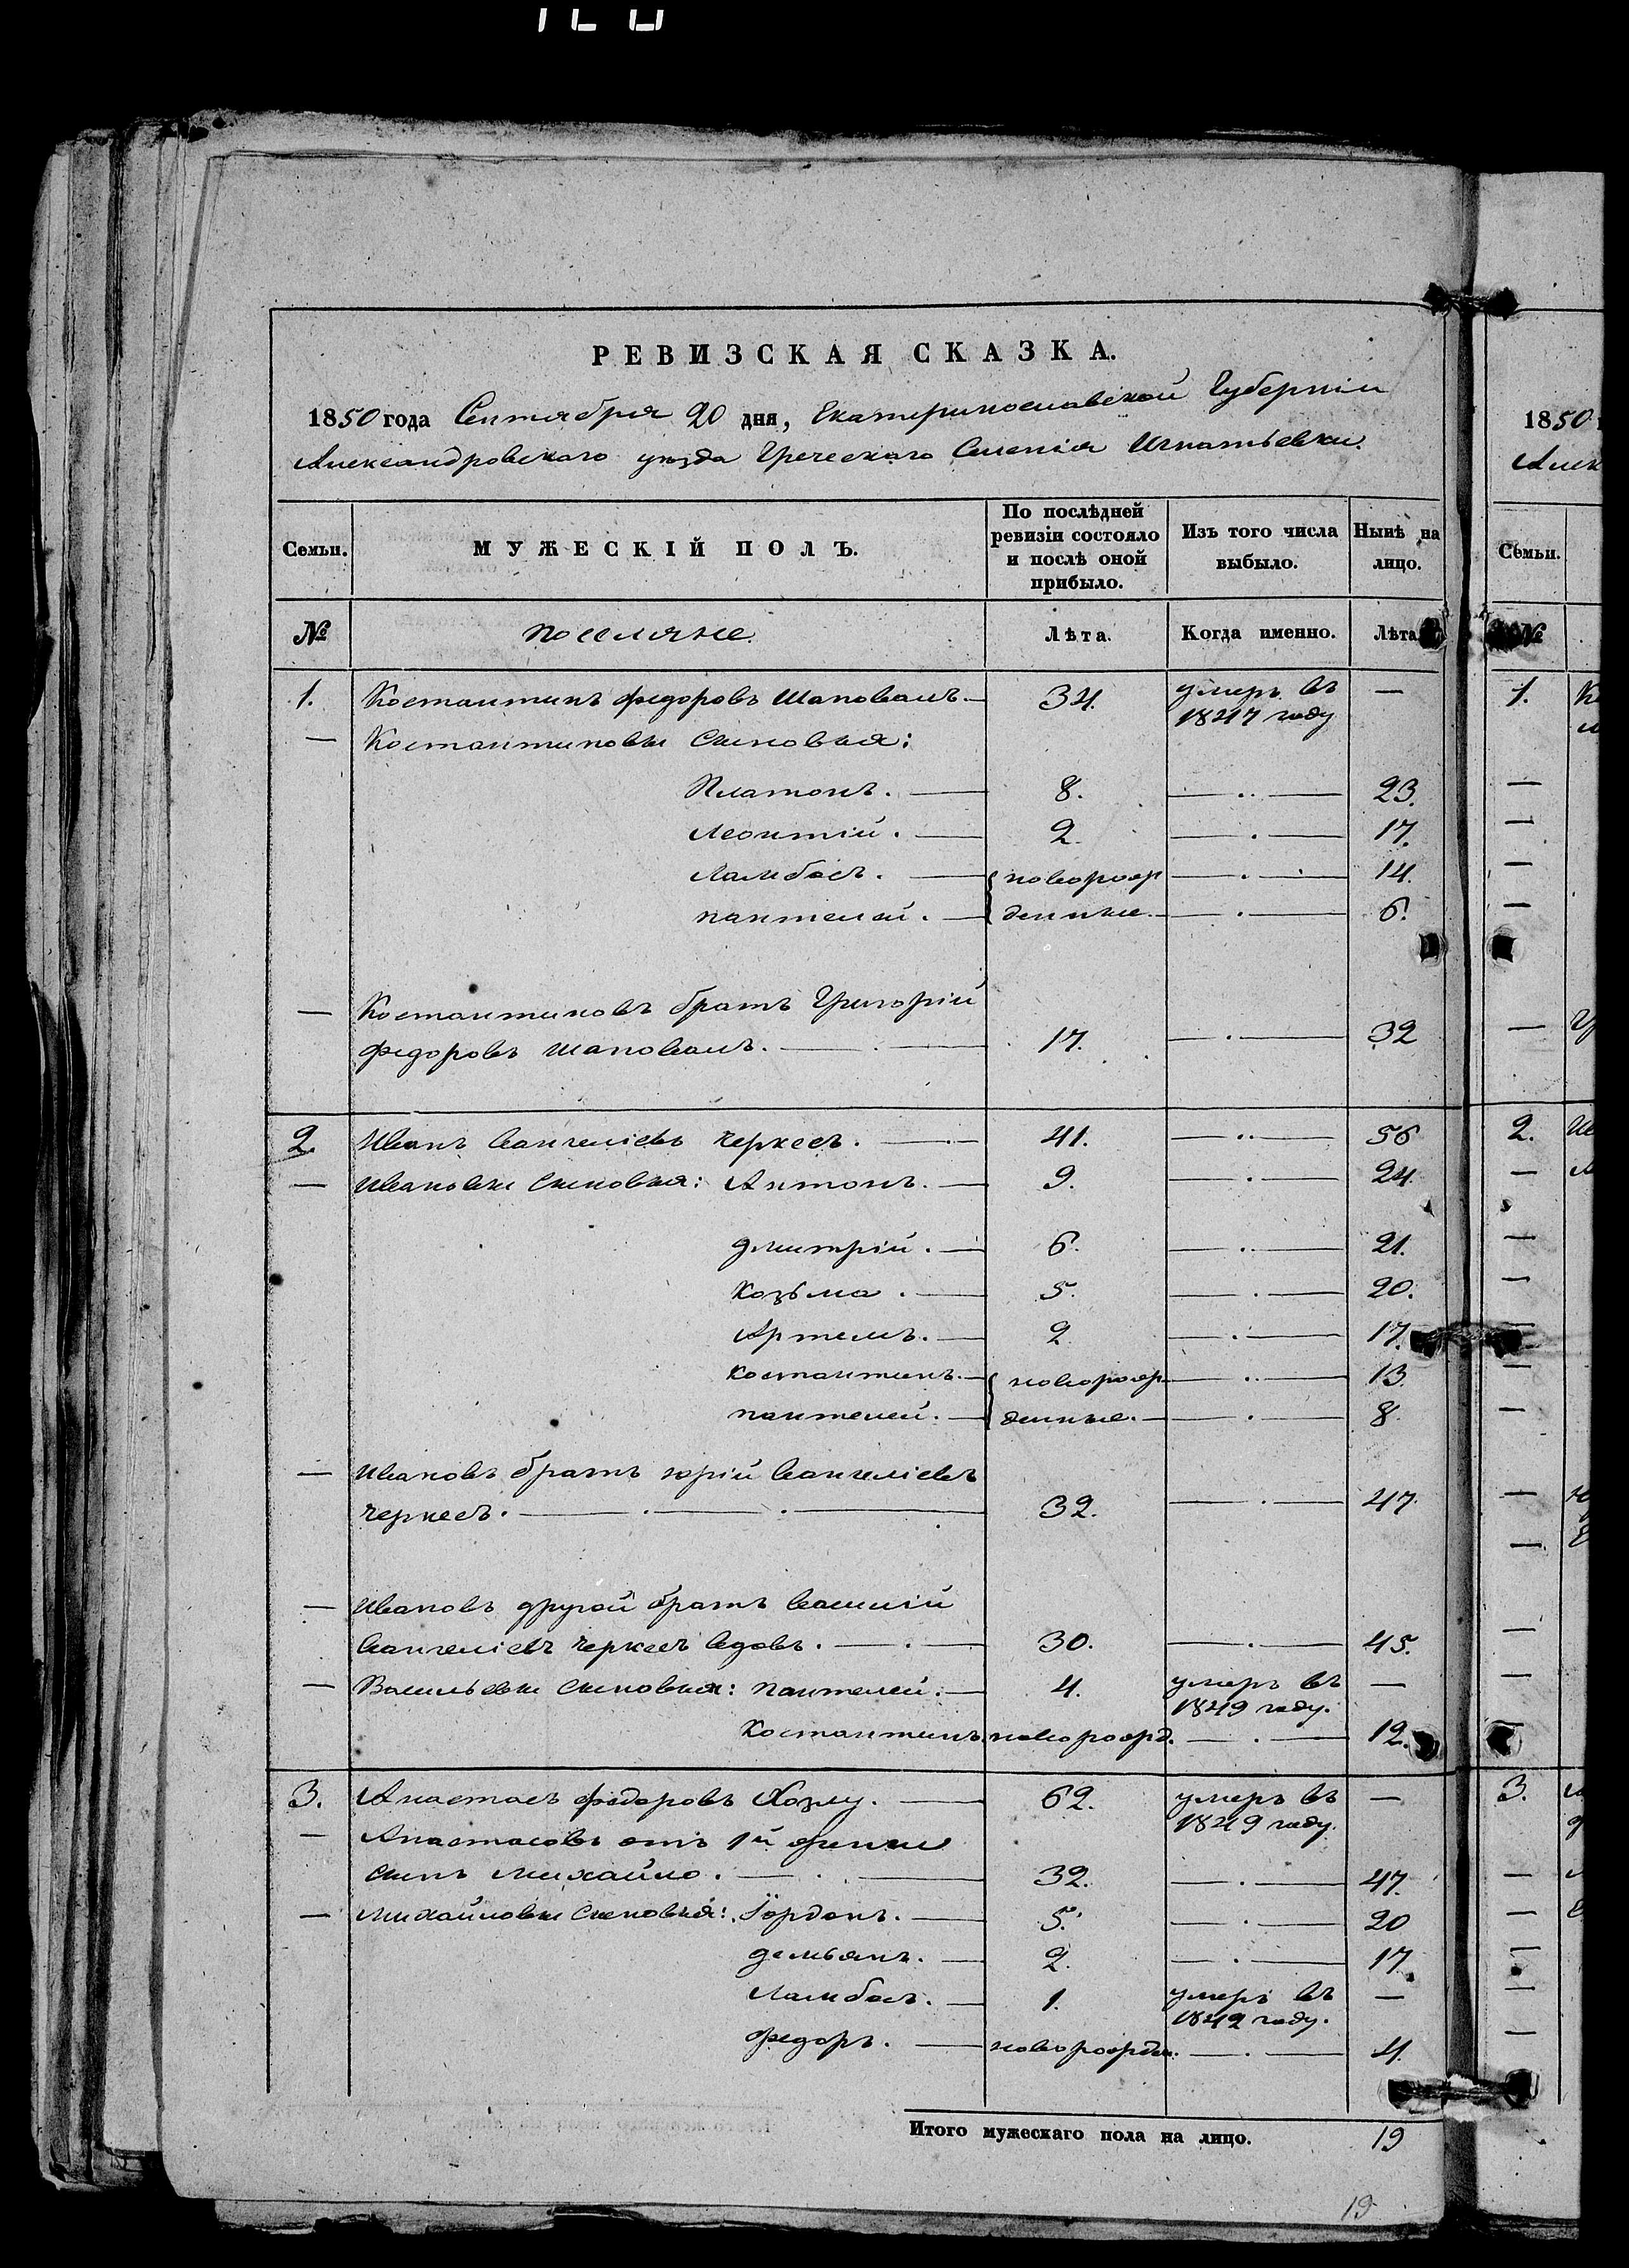 РЕВИЗСКАЯ СКАЗКА.
1850 года Сентября 20 дня, Екатеринославской Губерніи
Александровскаго уѣзда Греческаго Селенія Игнатьевки.
Семьи. МУЖЕСКІЙ ПОЛЪ. По послѣдней ревизіи состояло и послѣ оной прибыло. Изъ того числа выбыло. Нынѣ на лицо.
№ поселяне. Лѣта. Когда именно. Лѣта
1. Костантинъ Федоровъ Шаповалъ. — 34. умеръ въ 1847 году —
— Костантиновы Сыновья:
Платонъ. — 8. — 23.
Леонтій. — 2. — 17.
Ламбосъ. — { новорож — 14.
пантелей. — денные. — 6.
— Костантиновъ братъ Григорій
Федоровъ Шаповалъ. — 17. — 32
2. Иванъ Вангеліевъ Черкесъ. — 41. — 56
— Ивановы Сыновья: Антонъ. — 9. — 24.
Дмитрій. — 6. — 21.
Козьма. — 5. — 20.
Артемъ. — 2. — 17.
Костантинъ. — { новорож — 13.
пантелей. — денные. — 8.
— Ивановъ братъ Юрій Вангеліевъ
Черкесъ. — 32. — 47.
— Ивановъ другой братъ Василій
Вангеліевъ Черкесъ вдовъ. — 30. — 45.
— Васильевы Сыновья: пантелей. — 4. умеръ въ 1849 году. —
Костантинъ. новорожд. — 12.
3. Анастасъ Федоровъ Хозлу. — 62. умеръ въ 1849 году. —
— Анастасовъ отъ 1й жены
сынъ Михайло. — 32. — 47.
— Михайловы Сыновья: Іорданъ. — 5. — 20
Демьянъ. — 2. — 17.
Ламбосъ. — 1. умеръ въ 1842 году. —
Федоръ. — новорожден. — 4.
Итого мужескаго пола на лицо. 19
19
1850
Алек
Семьи.
№
1.
2.
3.